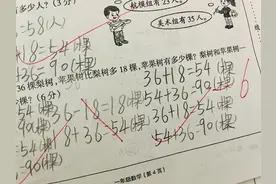 多少人?(3分)
航模组有23人。
=58(人)
美术组有35人。
+18=54(棵
+36=90(棵
36棵梨树,苹果树比梨树多18棵,苹果树有多少棵?梨树和苹果树一
棵?(6分)
36+18=54(棵)
54(棵 36-18=18(棵 54+36=90(棵)
90(棵 36+18=54(棵)
=54(棵 18+36=54(棵
54+36=90(棵)
=90(棵)
6
一年级数学(第4页)